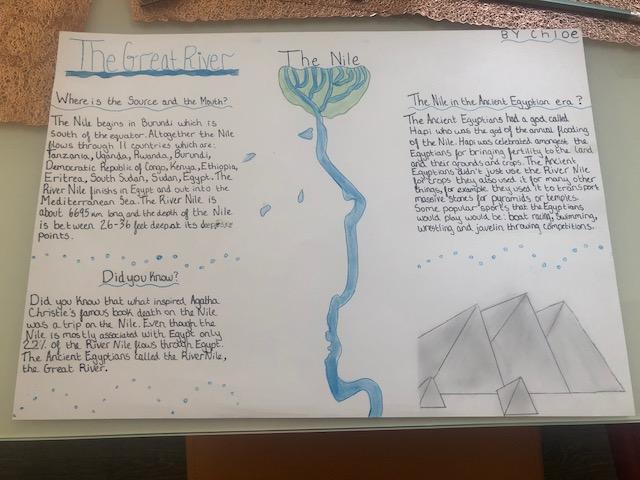 BY Chloe
The Great River
The Nile
Where is the Source and the Mouth?
The Nile begins in Burundi which is
south of the equator. Altogether the Nile
flows through 11 countries which are:
Tanzania, Uganda, Rwanda, Burundi,
Democratic Republic of Congo, Kenya, Ethiopia,
Eritrea, South Sudan, Sudan, Egypt. The
River Nile finishes in Egypt and out into the
Mediterranean Sea. The River Nile is
about 6695 km long and the depth of the Nile
is between 26-36 feet deep at its
points.
Did you Know?
Did you Know that what inspired Agatha
Christie's famous book death on the Nile
was a trip on the Nile. Even though the
Nile is mostly associated with Egypt only
22% of the River Nile flows through Egypt.
The Ancient Egyptians called the River Nile,
the Great River.
The Nile in the Ancient Egyptian era?
The Ancient Egyptians had a god called
Hapi who was the god of the annual flooding
of the Nile. Hapi was celebrated amongst the
Egyptians for bringing fertility to the land
and their grounds and crops. The Ancient
Egyptians didn't just use the River Nile
for crops they also used it for many other
things, for example they used it to transport
massive stones for pyramids or temples.
Some popular sports that the Egyptians
would play would be: boat racing, swimming,
wrestling and javelin throwing competitions.